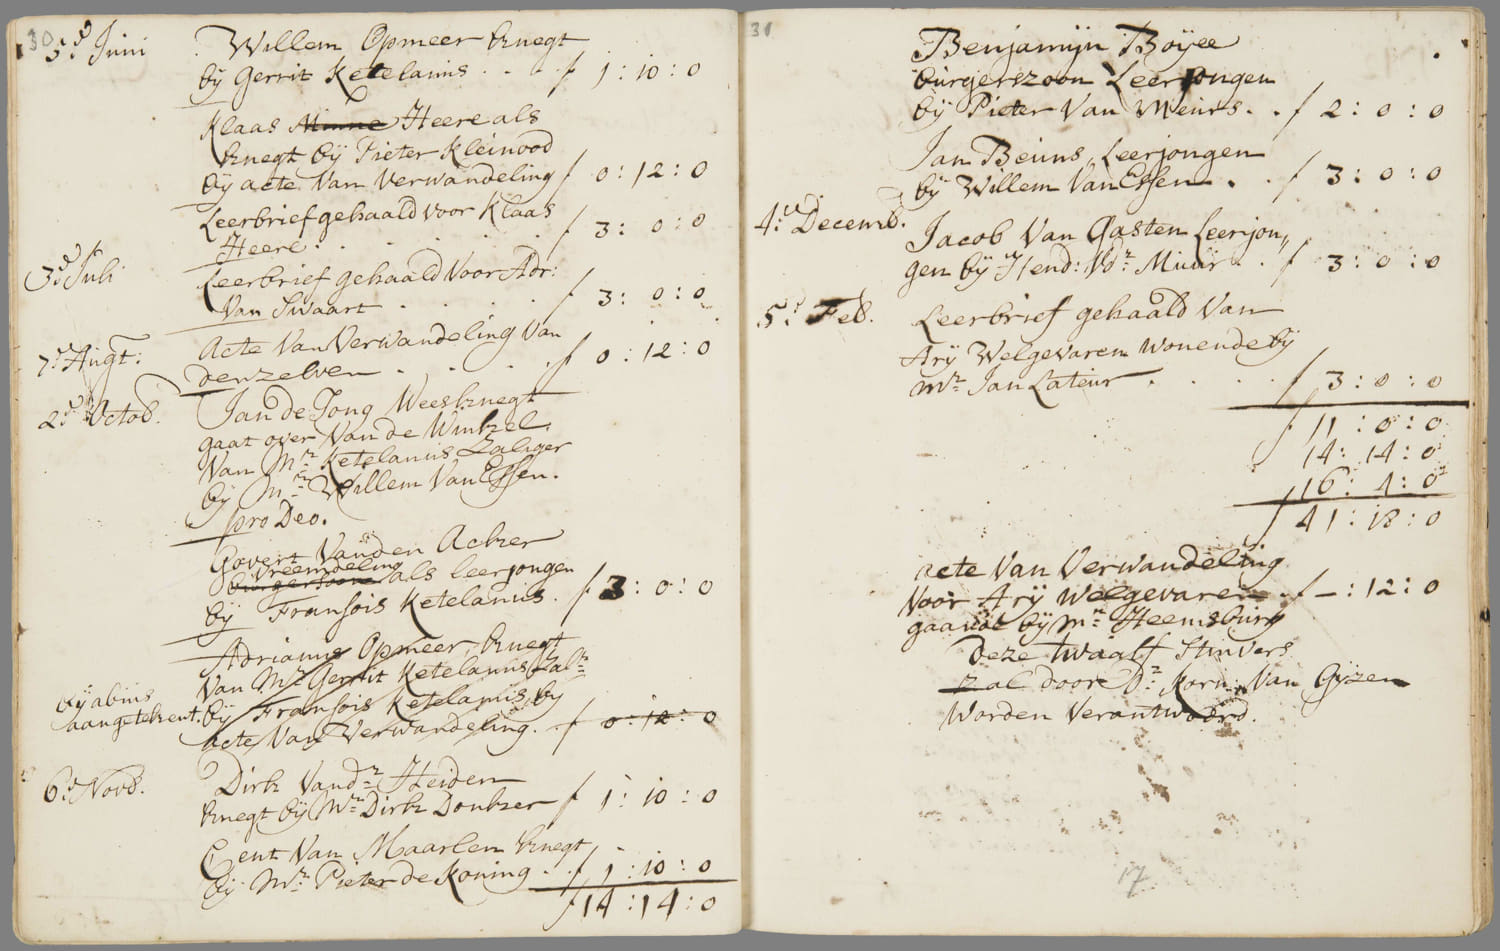 30
5:d Juni Willem Opmeer knegt
bÿ Gerrit Ketelanus . . . f 1 : 10 : 0
Klaas Minne Heere als
knegt bÿ Pieter Kleinood
bÿ acte Van Verwandeling f 0 : 12 : 0
Leerbrief gehaald voor Klaas
Heere . . . . . f 3 : 0 : 0
3:d Juli Leerbrief gehaald Voor Adr:
Van Swaart . . . . f 3 : 0 : 0
7:d Augt: Acte Van Verwandeling Van
denzelven . . . . f 0 : 12 : 0
2:d Octob. Jan de Jong Weesknegt
gaat over Van de Winkel
Van Mr: Ketelanus Zaliger
bÿ Mr: Willem Van Essen.
pro Deo.
Govert Vanden Acker
Vreemdeling
burgersoone als leerjongen
bÿ Fransois Ketelanus . f 3 : 0 : 0
Adrianus Opmeer, knegt
Van Mr: Gerrit Ketelanus Zalr:
bÿ abuis
aangetekent. bÿ Fransois Ketelanus, by
acte Van Verwandeling . . f 0 : 12 : 0
6:d Novb. Dirk Vandr: Heiden
knegt bÿ Mr: Dirk Donker f 1 : 10 : 0
Gent Van Maarlen knegt
bÿ Mr: Pieter de Koning . . f 1 : 10 : 0
f 14 : 14 : 0
31
Benjamÿn Boÿee
burgerszoon Leerjongen
bÿ Pieter Van Meurs . . f 2 : 0 : 0
Jan Beuns, Leerjongen
bÿ Willem Van Essen . . f 3 : 0 : 0
4:d Decemb. Jacob Van Qasten Leerjon„
gen bÿ Hend: Vdr: Muur . . f 3 : 0 : 0
5:d Feb. Leerbrief gehaald Van
Arÿ Welgevaren wonende bÿ
Mr: Jan Lateur . . . . f 3 : 0 : 0
f 11 : 0 : 0
14 : 14 : 0
16 : 4 : 0
f 41 : 18 : 0
acte Van Verwandeling
Voor Arÿ Welgevaren . f — : 12 : 0
gaande bÿ Mr: Heemsburg
Deze twaalf Stuivers
zal door Dr: Korn: Van Gÿzen
Worden Verantwoord.
17